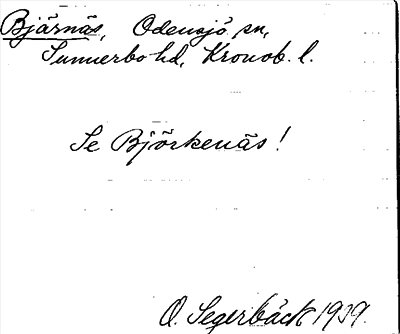 Bjärnäs, Odensjö sn,
Sunnerbo hd, Kronob. l.
Se Björkenäs!
O. Segerbäck 1939.